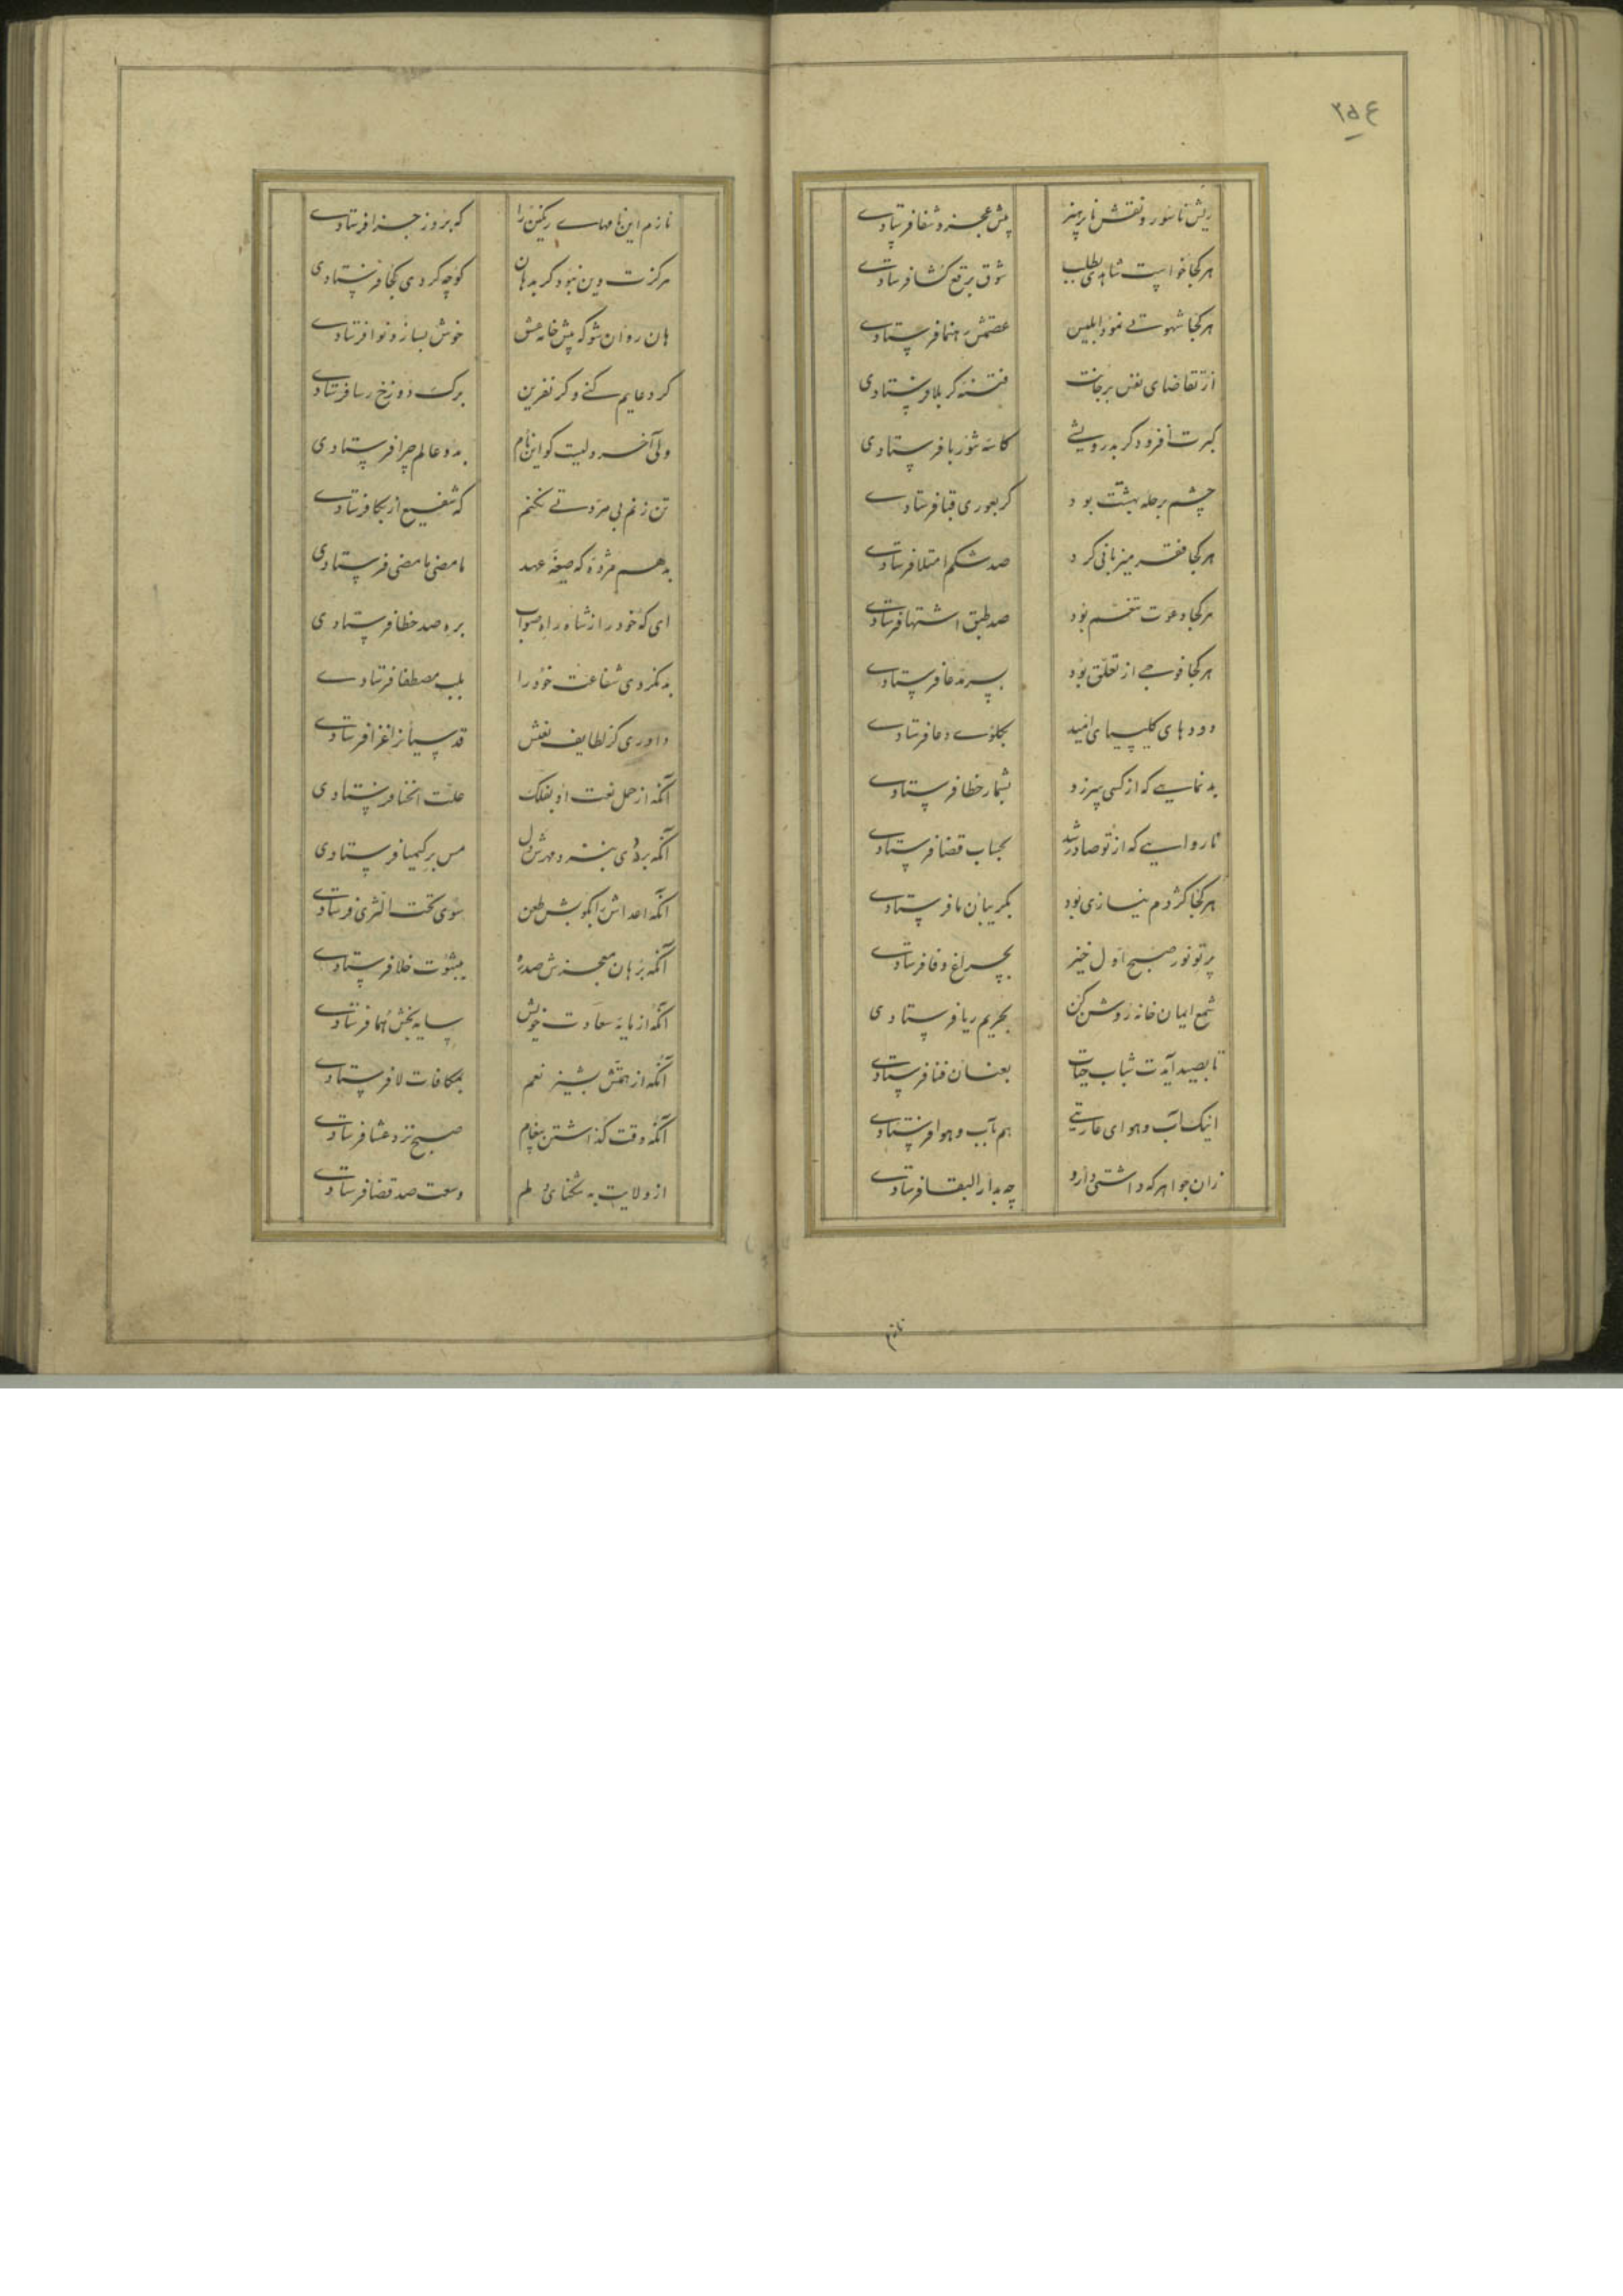 ریش ناسور و نقش ناپرهیز
پیش عجز و شفا فرستادی
هر کجا خواست شاهدی بطلب
شوق برقع گشا فرستادی
هر کجا شهوتی نمود ابلیس
عصمتش رهنما فرستادی
از تقاضای نفس بر جانت
فتنه کربلا فرستادی
کبرت افزود گر بدرویشی
کاسه شوربا فرستادی
چشم بر حله بهشتت بود
گر بعوری قبا فرستادی
هر کجا فقر میزبانی کرد
صد شکم امتلا فرستادی
هر کجا دعوت تنعم بود
صد طبق اشتها فرستادی
هر کجا فوجی از تعلق بود
بسر مدعا فرستادی
دودهای کلیسیای امید
بگلوی دعا فرستادی
بد نمایی که از کسی سرزد
بشمار خطا فرستادی
ناروایی که از تو صادر شد
بجناب قضا فرستادی
هر کجا کژدم نیازی بود
بگریبان ما فرستادی
پرتو نور صبح اول خیز
بچراغ وفا فرستادی
شمع ایمان خانه روشن کن
بحریم ریا فرستادی
تا بصید آیدت شباب حیات
بعنان فنا فرستادی
اینک آب و هوای عاریتی
هم بآب و هوا فرستادی
زان جواهر که داشتی دارو
چه بدار البقا فرستادی
نازم
نازم این نامهای رنگین را
که بروز جزا فرستادی
مرکزت دین نبود گر بدهان
کوچ کردی کجا فرستادی
هان روان شو که پیش خانه عیش
خوش بساز و نوا فرستادی
گر دعایم کنی و گر نفرین
برگ دوزخ رسا فرستادی
ولی آخر دلیت کو این نام
بدو عالم چرا فرستادی
تن زنم بی مروتی نکنم
که شفیع از بکا فرستادی
بدهم مژده که صیغه عهد
ما مضی ما مضی فرستادی
ای که خود را ز شاه راه صواب
بره صد خطا فرستادی
بد نکردی شفاعت خود را
بلب مصطفا فرستادی
داوری کز لطایف نعتش
قدسیان را غزا فرستادی
آنکه از حمل نعت او بفلک
علت انحنا فرستادی
آنکه بردی بنزد مهرش دل
مس بر کیمیا فرستادی
آنکه اعداش را بکوبش طعن
سوی تحت الثری فرستادی
آنکه برهان معجزش صد ره
بثبوت خلا فرستادی
آنکه از مایه سعادت خویش
سایه بخش هما فرستادی
آنکه از همتش بشیر نعم
بمکافات لا فرستادی
آنکه وقت گذاشتن پیغام
صبح نزد عشا فرستادی
از ولایت به تنگنای دلم
وسعت صد قضا فرستادی